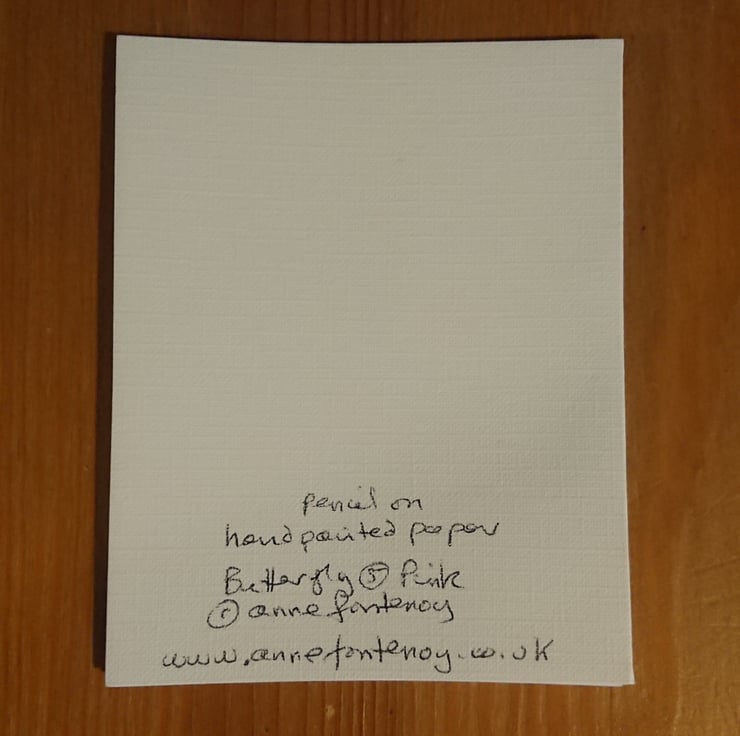 pencil on
hand painted paper
Butterfly ⑤ Pink
© anne fontenoy
www.annefontenoy.co.uk